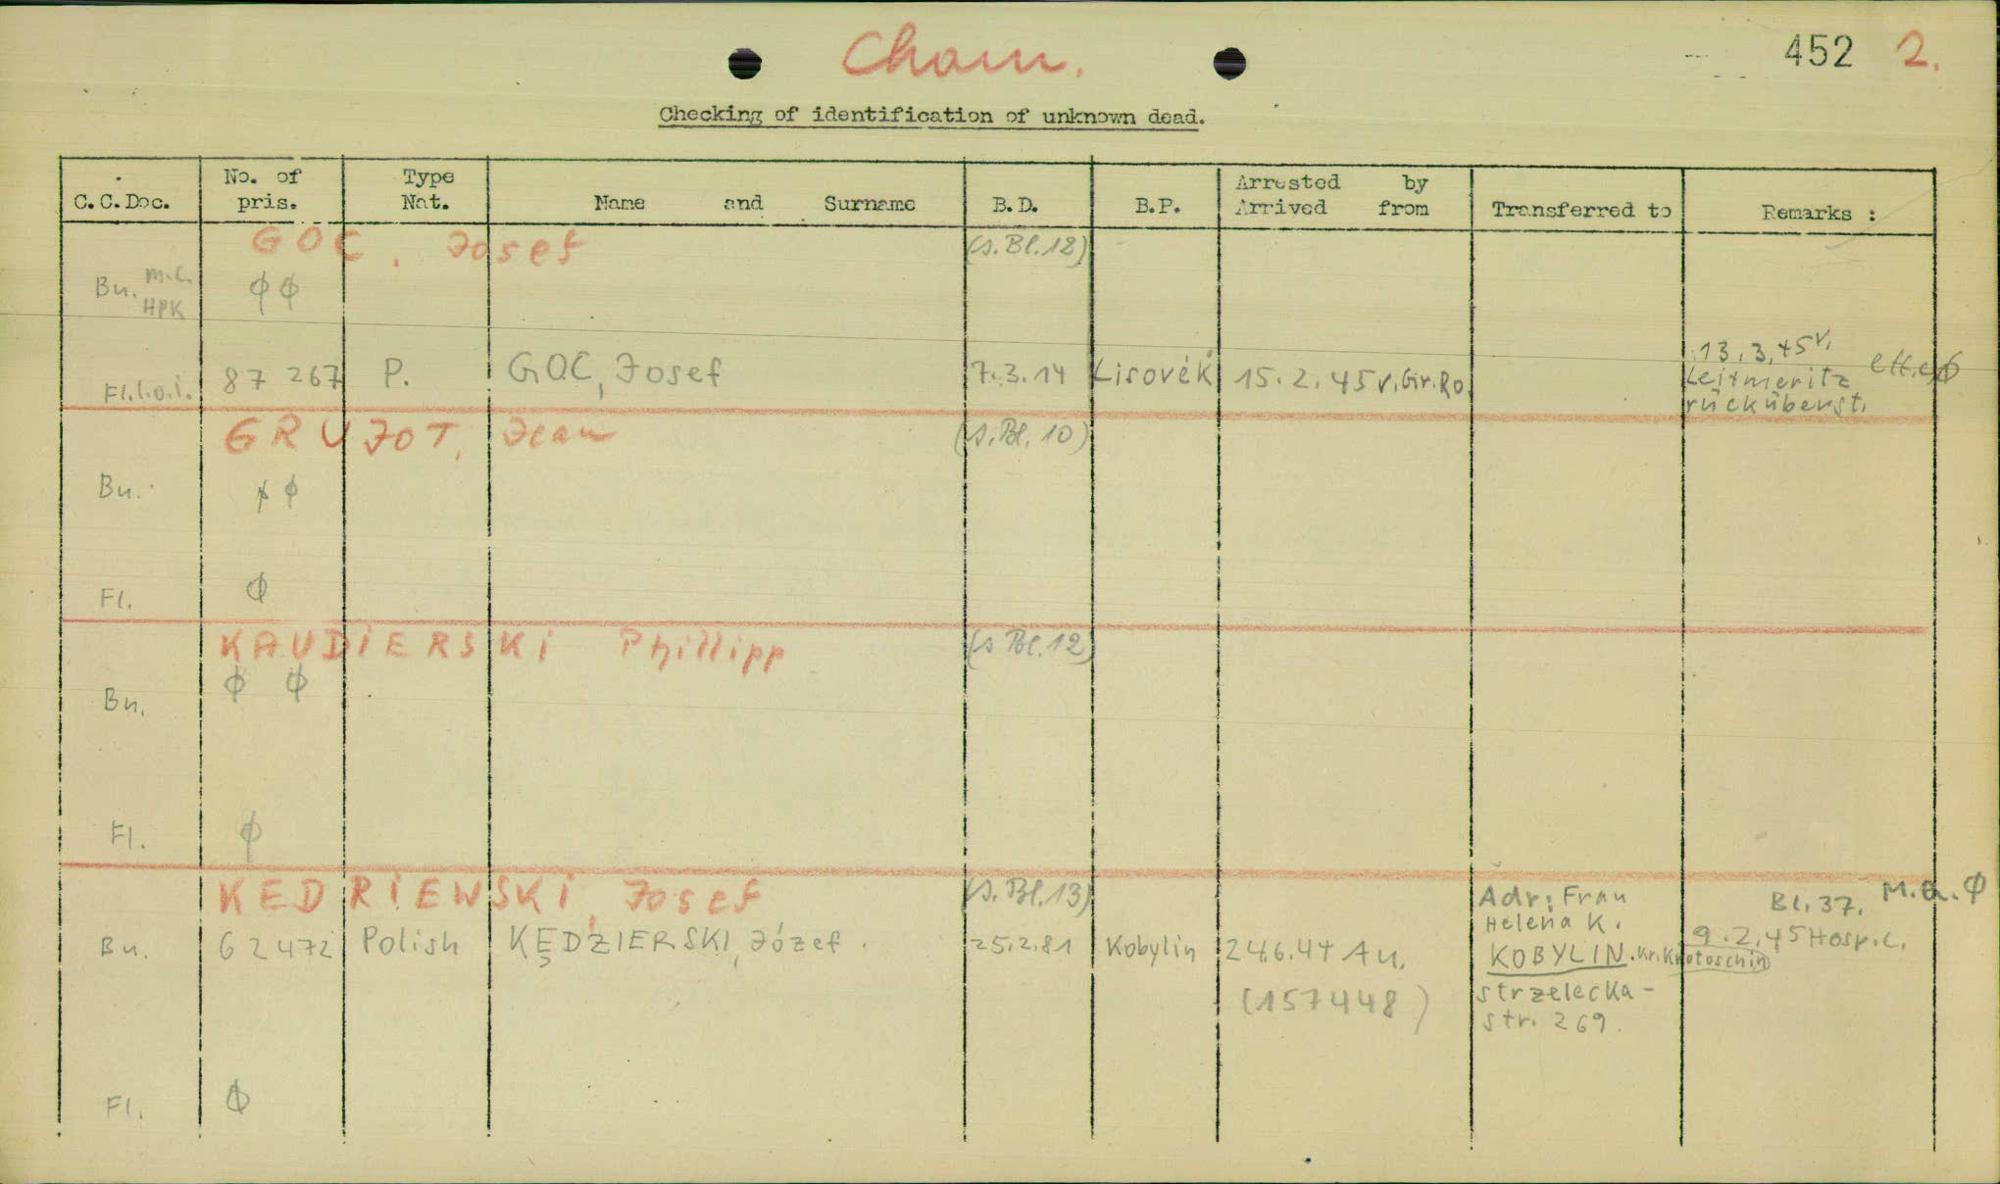 Cham. 452 2.
Checking of identification of unknown dead.
C.C.Doc. No. of pris. Type Nat. Name and Surname B.D. B.P. Arrested by Arrived from Transferred to Remarks :
GOC, Josef (s. Bl. 12)
Bu. M.C. HPK ϕ ϕ
Fl. l.o.i. 87 267 P. GOC, Josef 7.3.14 Lisovék 15.2.45 v. Gr. Ro. 13.3.45 v. Leitmeritz rücküberst. eff. c. ϕ
GRUJOT, Jean (s. Bl. 10)
Bu. ϕ ϕ
Fl. ϕ
KAUDIERSKI Phillipp (s Bl. 12)
Bu. ϕ ϕ
Fl. ϕ
KEDRIEWSKI, Josef (s. Bl. 13) Bl. 37. M.a. ϕ
Bu. 62472 Polish KĘDZIERSKI, Józef. 25.2.81 Kobylin 24.6.44 Au. 9.2.45 Hosp. C.
(157448)
Adr: Frau
Helena K.
KOBYLIN. Kr. Krotoschin
Strzelecka-
str. 269.
Fl. ϕ